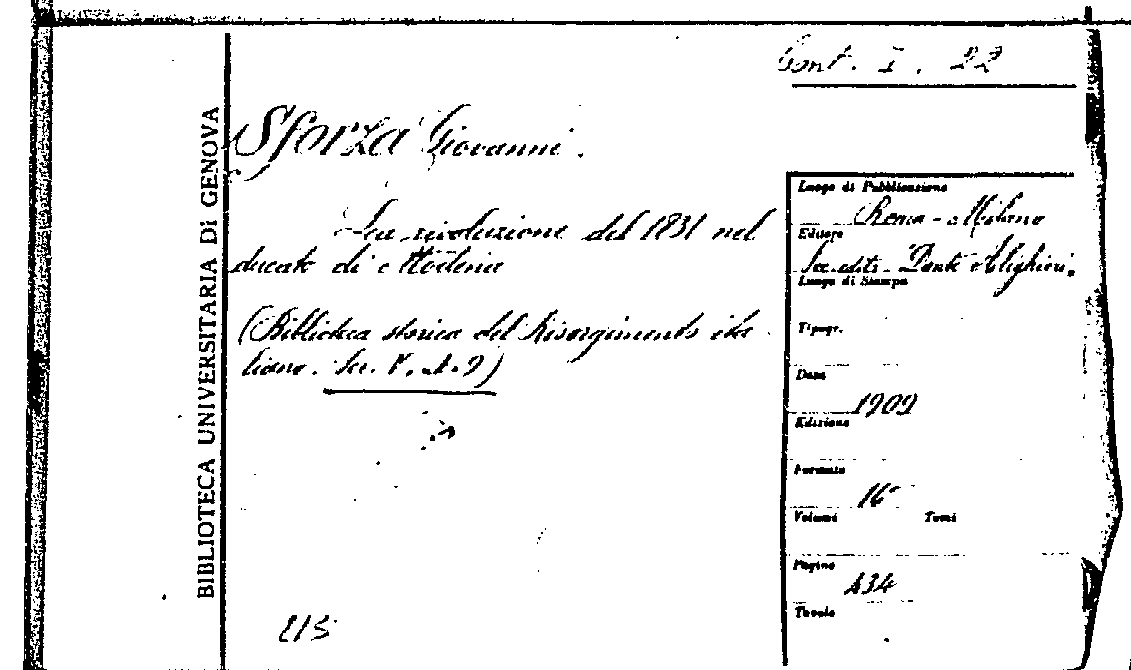 Cont. I. 22
BIBLIOTECA UNIVERSITARIA DI GENOVA
Sforza Giovanni.
La rivoluzione del 1831 nel
ducato di Modena
(Biblioteca storica del Risorgimento ita-
liano. Ser. V. n. 9)
Luogo di Pubblicazione
Roma - Milano
Editore
Soc. edit. Dante Alighieri.
Luogo di Stampa
Tipogr.
Data
1909
Edizione
Formato
16°
Volumi Tomi
Pagine
434
Tavole